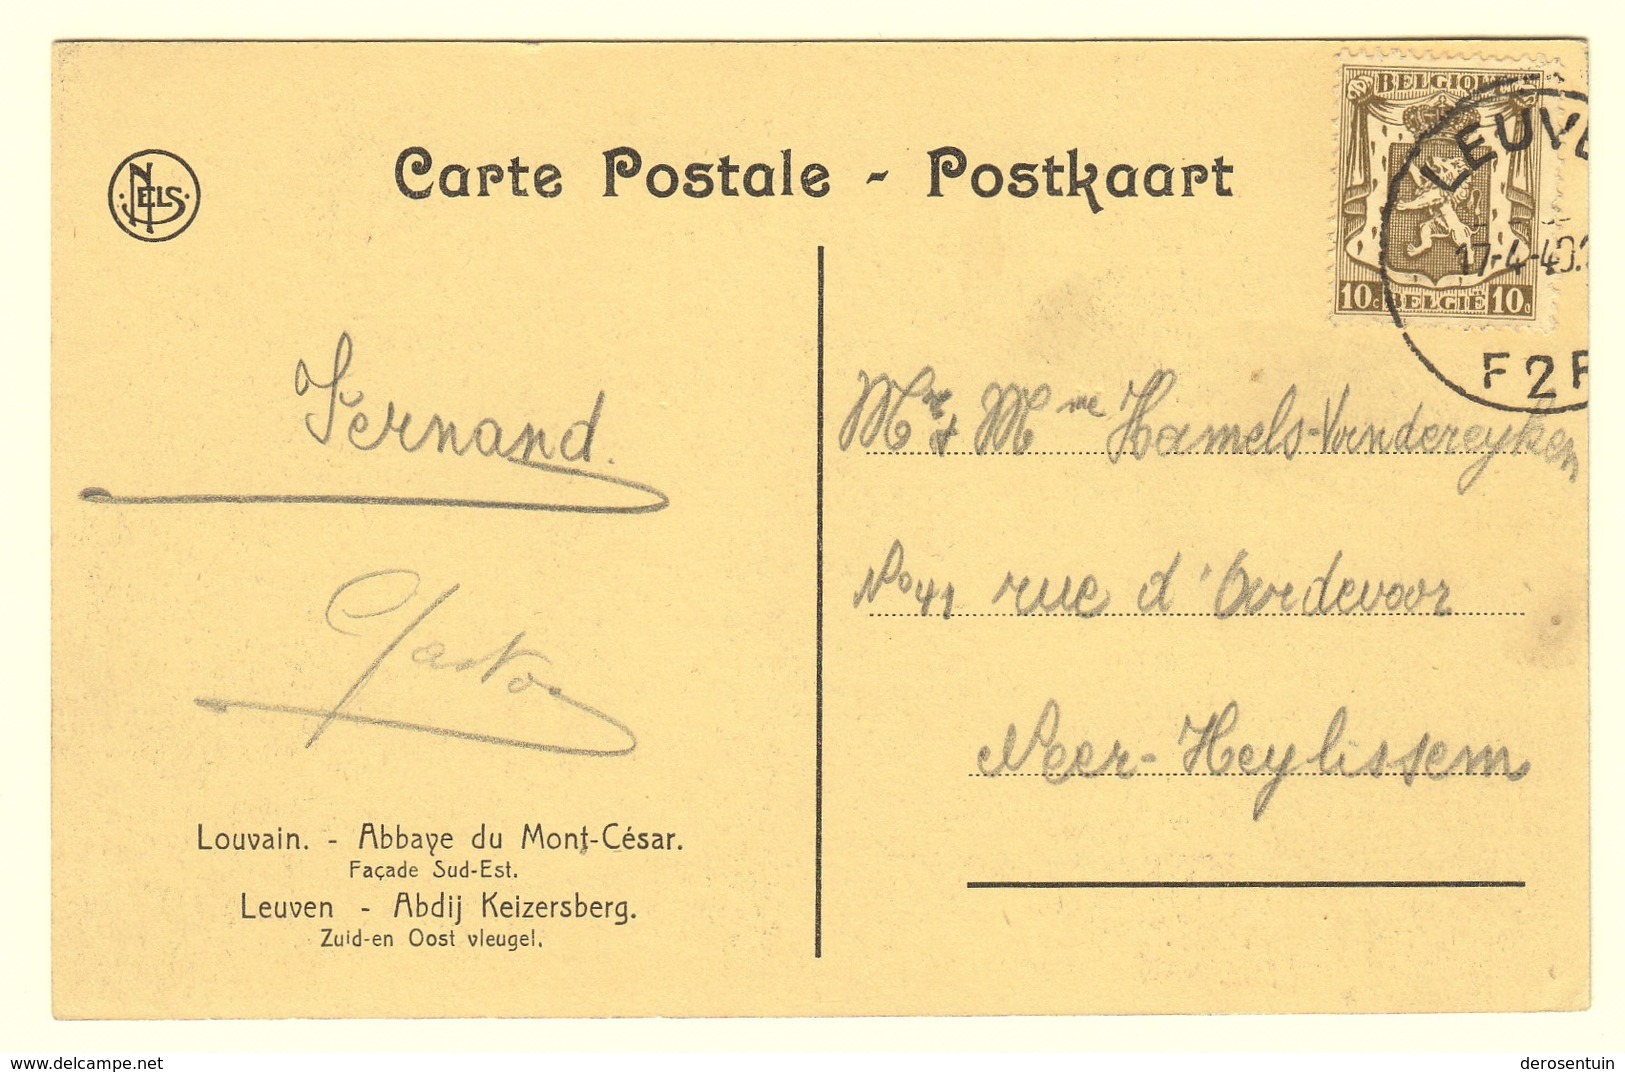 Carte Postale - Postkaart
NELS
BELGIQUE
10c BELGIË 10c
LEUVE
17-4-40
F2F
Fernand.
Gaston
Mr et Mme Hamels-Vandereyken
No 41 rue d'Ordevoor
Neer-Heylissem
Louvain. - Abbaye du Mont-César.
Façade Sud-Est.
Leuven - Abdij Keizersberg.
Zuid-en Oost vleugel.
www.delcampe.net
derosentuin